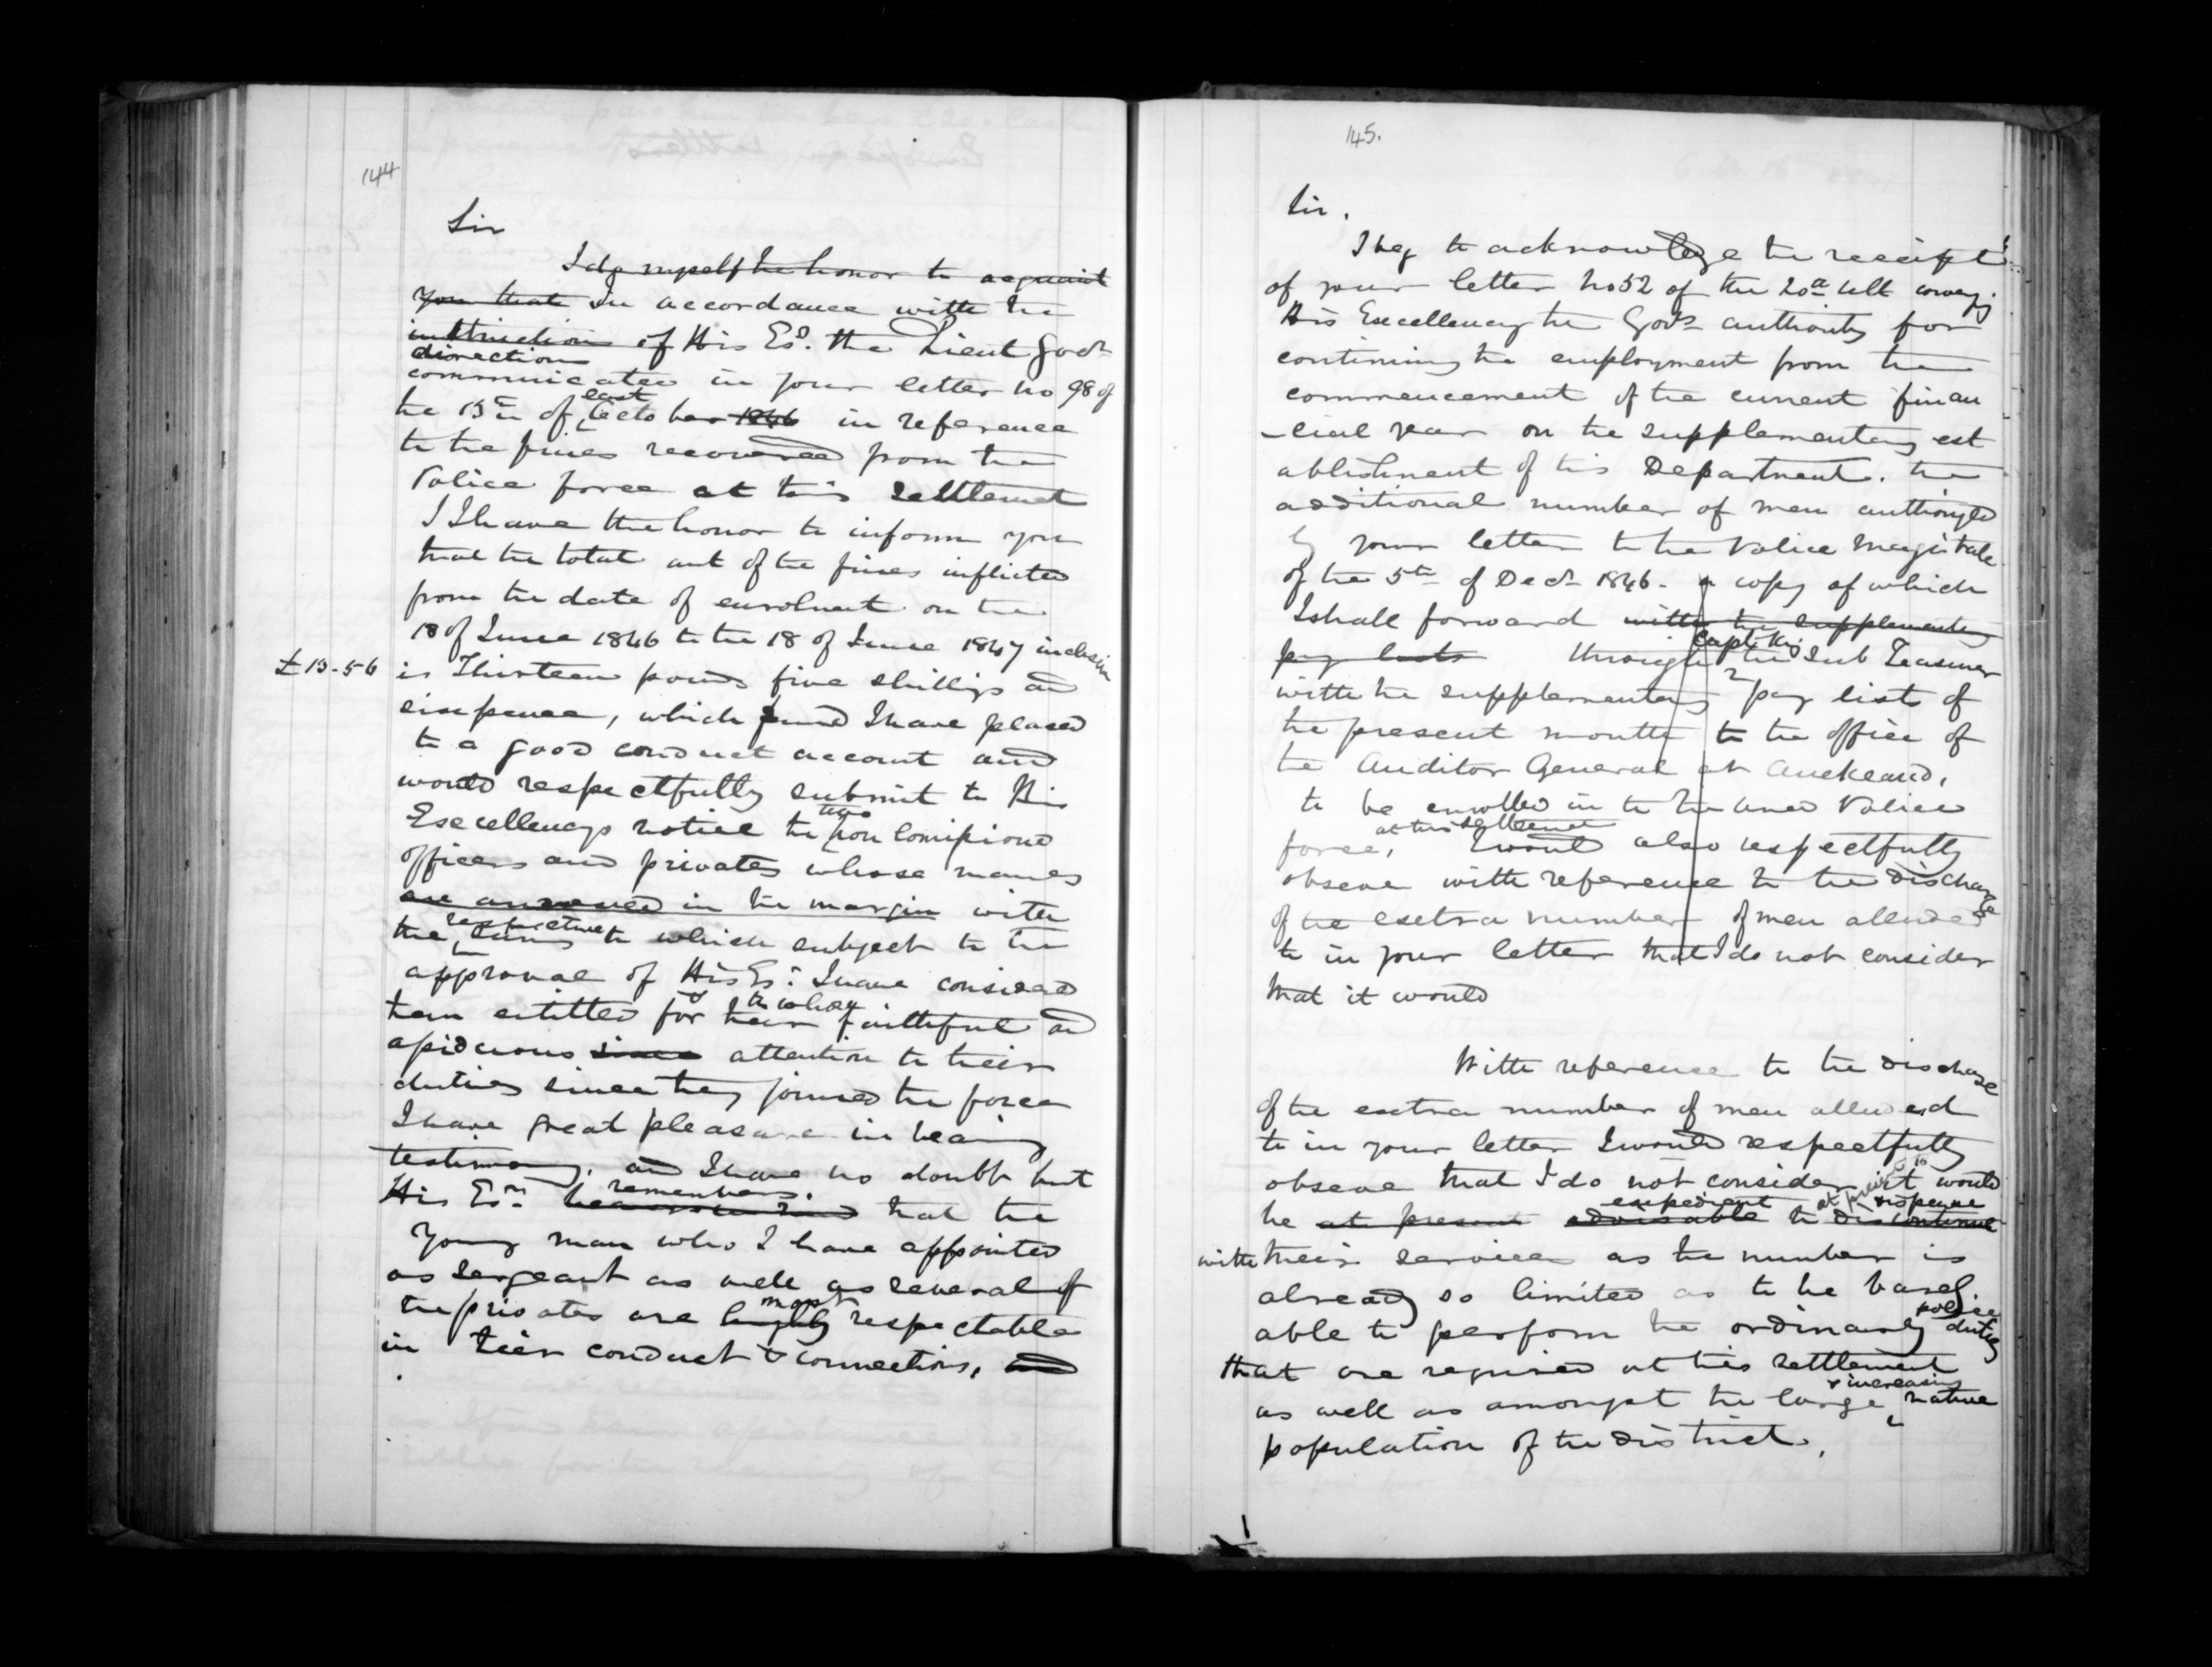 144
Sir
I do myself the honor to acquaint
you that In accordance with the
instructions of His Ex. the Lieut Govr
directions
communicated in your letter no 98 of
last
the 13th of October 1846 in reference
to the fines recovered from the
Police force at this settlement
I I have the honor to inform you
that the total amt of the fines inflicted
from the date of enrolment on the
18 of June 1846 to the 18 of June 1847 inclusive
£13-5-6 is Thirteen pounds five shillings and
sixpence, which fund I have placed
to a good conduct account and
would respectfully submit to His
two
Excellencys notice the non Comissiond
officers and privates whose names
are annexed in the margin with
respective
the sums to which subject to the
approval of His Ex: I have considered
to whose
them entitled for their faithful and
assiduous since attention to their
duties since they joined the force
I have great pleasure in bearing
testimony. and I have no doubt but
remembers
His Ex. that the
young man who I have appointed
as sergeant as well as several of
most
the privates are highly respectable
in their conduct & connections, and
145.
Sir.
I beg to acknowlege the receipt
of your letter No 52 of the 20th ult conveyg
His Excellency the Govrs authority for
continuing the employment from the
commencement of the current finan
-cial year on the supplementary est
ablishment of this Department. the
additional number of men authorized
by your letter to the Police Magistrate
of the 5th of Decr 1846. a copy of which
I shall forward with the supplementary
Capt King
pay lists through the Sub Treasurer
with the supplementary pay list of
the present month to the office of
the Auditor General at Auckland.
to be enrolled in to the Armed Police
at this settlement
force, I would also respectfully
observe with reference to the discharge
of the extra number of men alluded
to in your letter that I do not consider
that it would
With reference to the discharge
of the extra number of men alluded
to in your letter I would respectfully
observe that I do not consider it would
expedient at present dispense
be at present advisable to discontinue
with their services as the number is
already so limited as to be barely
police
able to perform the ordinary duties
that are required at this settlement
& increasing
as well as amongst the large native
population of the district.